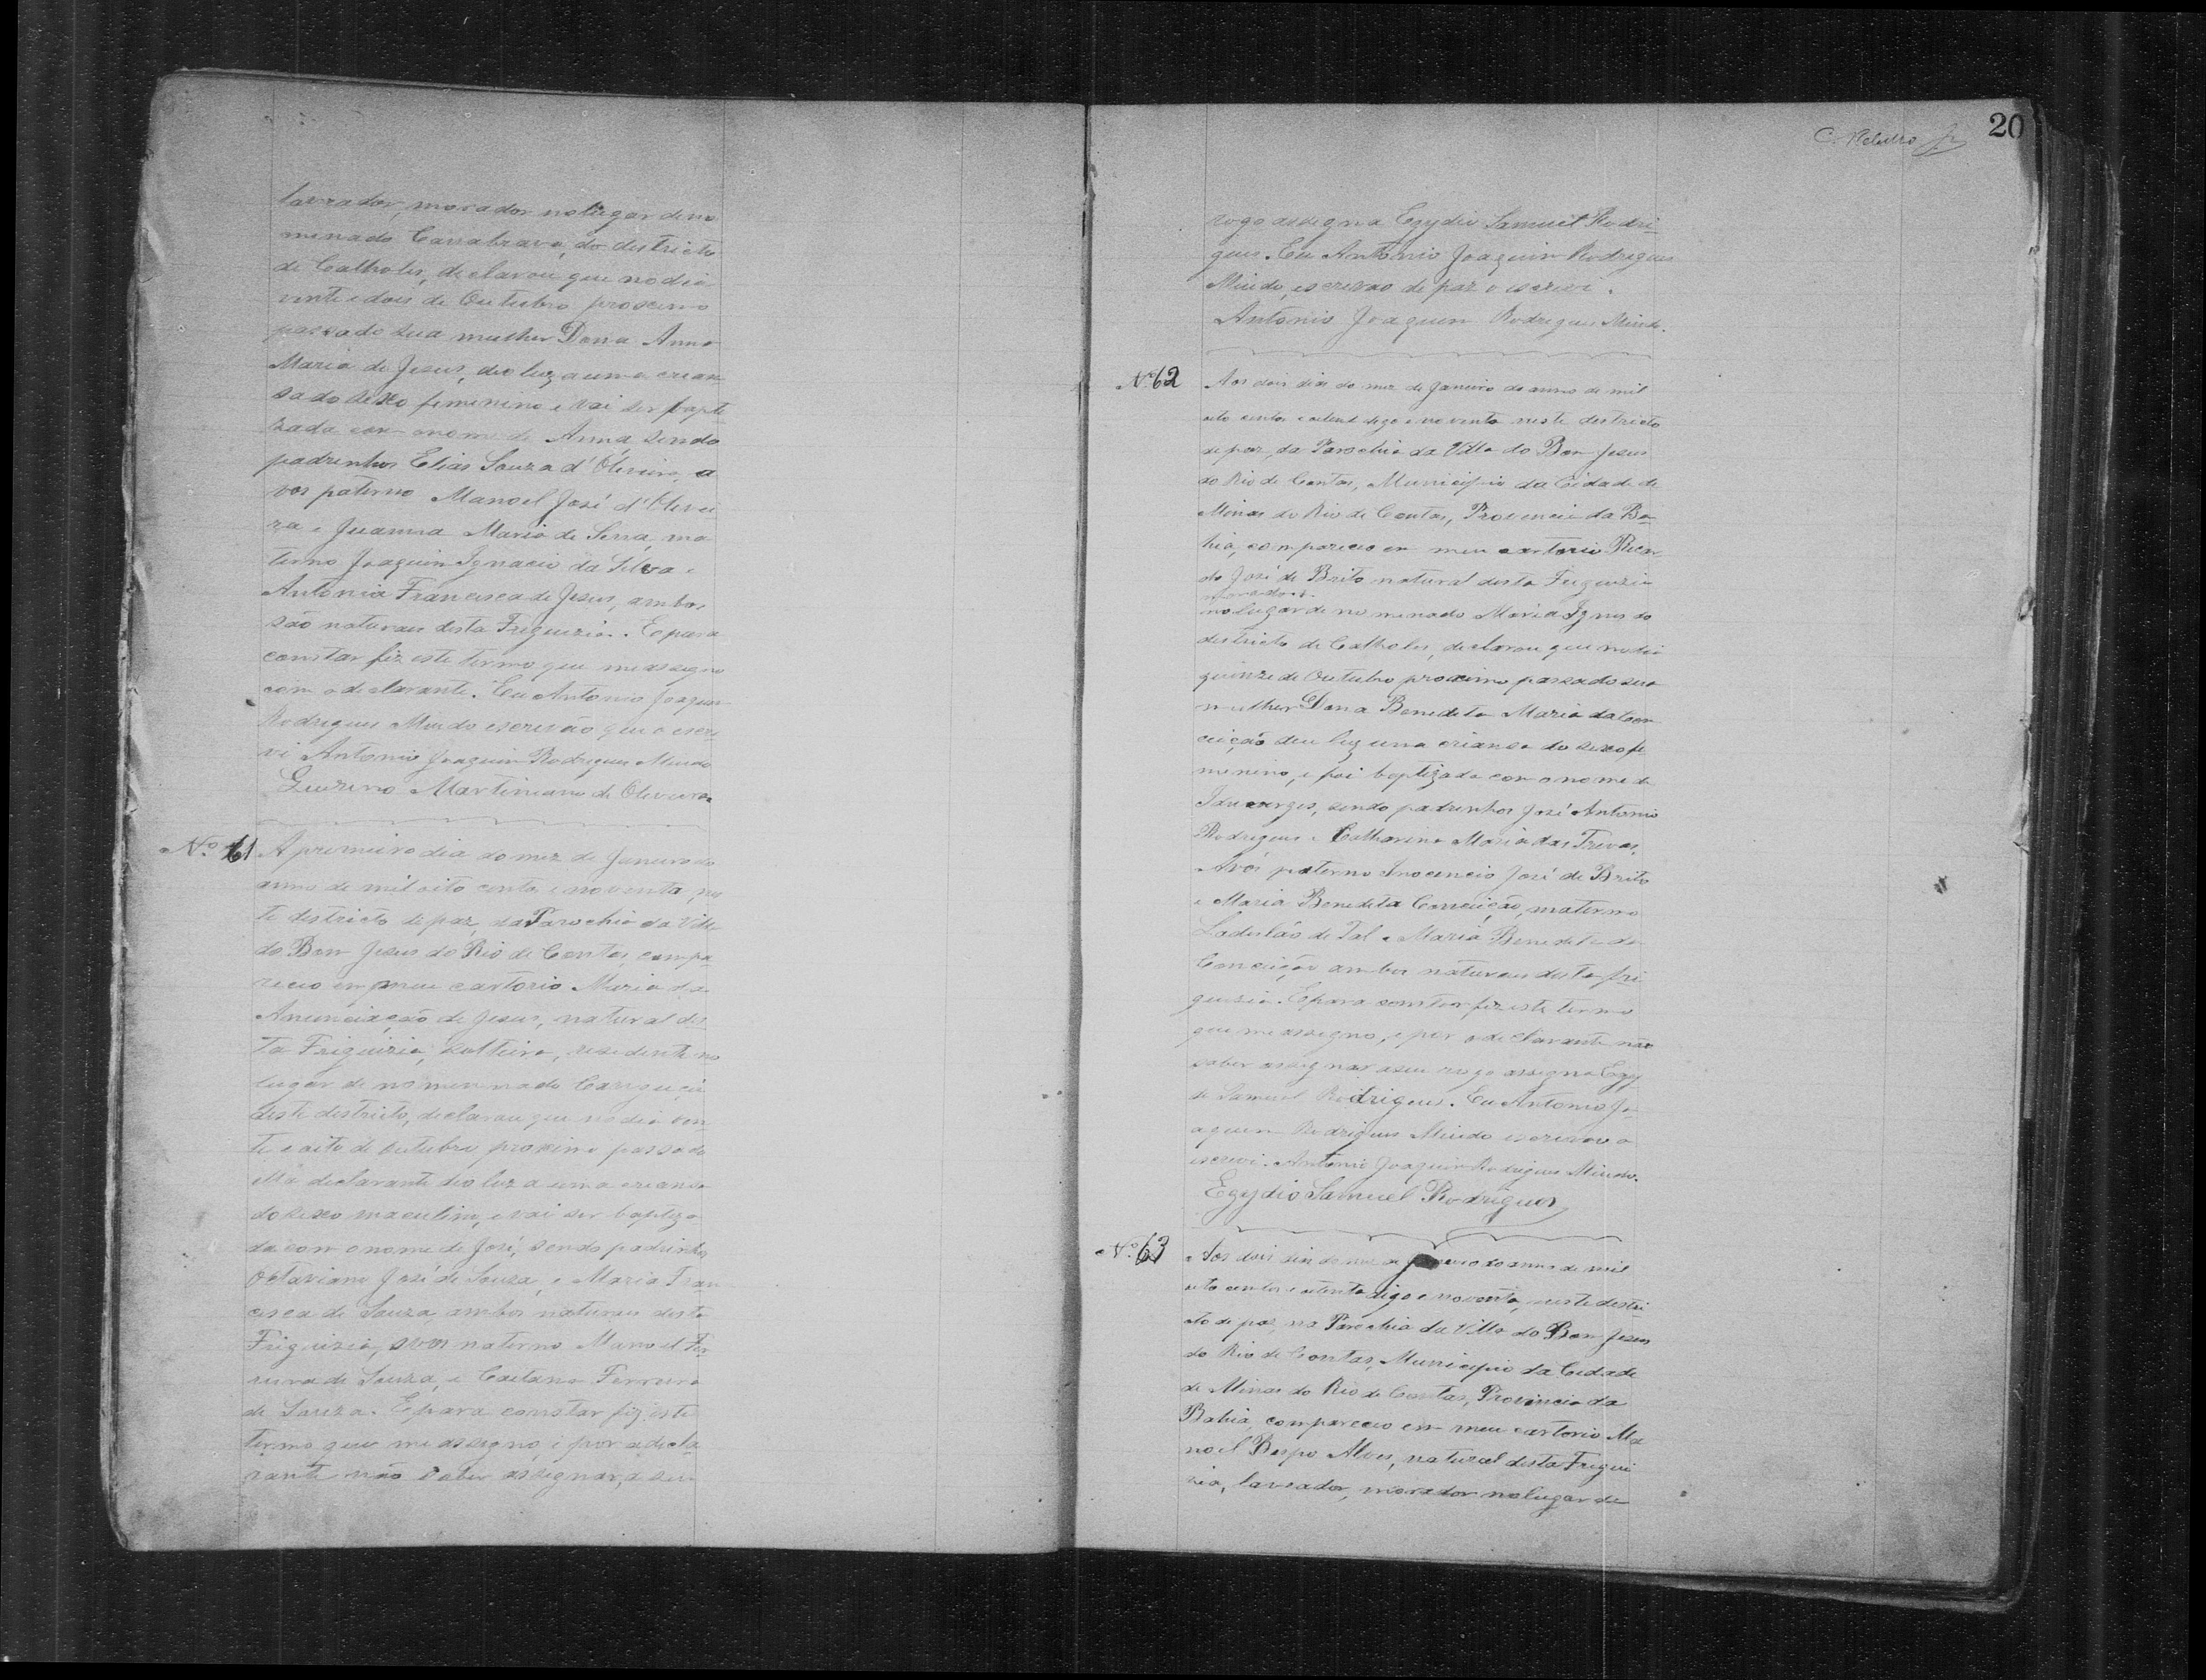 lavrador, morador no lugar deno
minado Cannabrava, do districto
de Catholes, declarou que no dia
vinte e dois de Outubro proximo
passado sua mulher Dona Anna
Maria de Jesus, deo luz a uma crean
sa do sexo femenino e vai ser bapti
zada com o nome de Anna, sendo
padrinhos Elias Souza d'Oliveira, a
vos paterno Manoel José d'Olivei
ra e Juanna Maria de Serra, ma
terno Joaquim Ignacio da Silva e
Antonia Francisca de Jesus, ambos
são naturaes desta Freguezia. E para
constar fiz este termo que me assigno
com o declarante. Eu Antonio Joaquim
Rodrigues Miudo escrivão que o escre
vi Antonio Joaquim Rodrigues Miudo
Martiniano de Oliveira
Nº 61 A primeiro dia do mez de Janeiro do
anno de mil oito centos e noventa, nes
te districto de paz, da Parochia da Villa
do Bom Jesus do Rio de Contas, compa
receo em meu cartorio Maria da
Anunciação de Jesus, natural des
ta Freguizia, solteira, residente no
lugar denomenado
deste districto, declarou que no dia vin
te e oito de outubro proximo passado
ella declarante deo luz a uma creansa
do sexo masculino, e vai ser baptiza
do com o nome de José, sendo padrinhos
Octaviano José de Souza, e Maria Fran
cisca de Souza, ambos naturaes desta
Freguizia, avos materno Manoel Fer
reira de Souza, e Caetana Ferreira
de Souza. E para constar fiz este
termo que me assigno, e por a decla
rante não saber assignar, a seu
C. Rebello Jr 20
rogo assigna Egydio Samuel Rodri
gues. Eu Antonio Joaquim Rodrigues
Miudo, escrivão de paz o escrevi.
Antonio Joaquim Rodrigues Miudo.
Nº 62 Aos dois dias do mez de Janeiro do anno de mil
oito centos e oitent digo e noventa neste destricto
de paz, da Parochia da Villa do Bom Jesus
do Rio de Contas, Municipio da Cidade de
Minas do Rio de Contas, Provincia da Ba
hia, compareceo em meu cartorio Ricar
do José de Brito natural desta Freguizia
morador
no lugar denomenado Maria Ignes do
destricto de Catholes, declarou que no dia
quinze de Outubro proximo passado sua
mulher Dona Benedita Maria da Con
ceição deu luz uma criansa do sexo fe
menino, e foi baptizada com o nome de
Iduverges, sendo padrinhos José Antonio
Rodrigues e Catharina Maria das Trevas,
Avós paterno Inocencio José de Brito
e Maria Benedita Conceição, materno
Ladislão de Tal e Maria Benedita da
Conceição ambos naturaes desta fre
guesia. E para constar fiz este termo
que me assigno, e por o declarante não
saber assignar a seu rogo assigna Egy
de Samuel Rodrigues. Eu Antonio Jo
aquim Rodrigues Miudo escrivão o
escrevi. Antonio Joaquim Rodrigues Miudo.
Egydio Samuel Rodrigues
Nº 63 Aos dois dias do mez de Janeiro do anno de mil
oito centos e oitenta digo e noventa, neste destri
cto de paz, na Parochia da Villa do Bom Jesus
do Rio de Contas, Municipio da Cidade
de Minas do Rio de Contas, Provincia da
Bahia, compareceo em meu cartorio Ma
noel Bispo Alves, natural desta Fregui
zia, lavrador, morador no lugar de